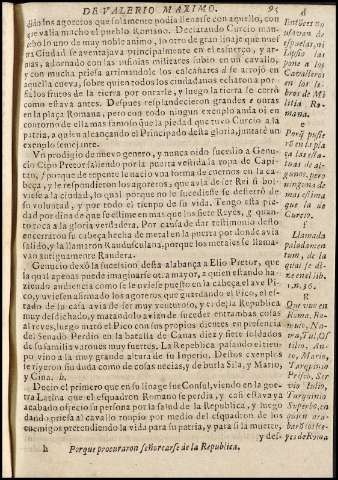 DE VALERIO MAXIMO. 95
dido los agoreros que solamente podia llenarse con aquello, con
que valia mucho el pueblo Romano. Declarando Curcio man-
cebo lo uno de muy noble animo, lo otro de gran linaje que nuestra
Ciudad se aventajava principalmente en el esfuerço, y ar-
mas, adornado con las insinias militares subio en un cavallo,
y con mucha priesa arrimandole los calcañares se arrojò en
aquella cueva, sobre quien todos los ciudadanos echaron por
sus frutos de la tierra por onrarle, y luego la tierra se cerrò
como estava antes. Despues resplandecieron grandes
en la plaça Romana, pero con todo ningun exemplo anda oi en
contorno de ella mas famoso que la piedad que tuvo Curcio a la
patria, a quien alcançando el Principado desta gloria, juntarè un
exemplo semejante.
Un prodigio de nuevo genero, y nunca oido sucedio a Genu-
cio Cipo Pretor saliendo por la puerta vestida la ropa de Capi-
tan, porque de repente le nacio una forma de cuernos en la ca-
beça, y le respondieron los agoreros, que avia de ser Rei si bol-
viesse a la ciudad, lo qual porque no sucediesse se desterrò de
su voluntad, y por todo el tiempo de su vida. Tengo esta pie-
dad por dina de que se estime en mas que los siete Reyes, quanto
toca a la gloria verdadera. Por causa de dar testimonio desto
encerraron su cabeça hecha de metal en la puerta por donde avia
salido, y la llamaron Raudusculana, porque los metales se llama-
van antiguamente Raudera.
Genucio dexò la sucesion desta alabança a Elio Pretor, que
la qual apenas puede imaginarse otra mayor, a quien estando ha-
ziendo audiencia como se le uviesse puesto en la cabeça el ave Pi-
co, y uviessen afirmado los agoreros que guardando el Pico, el es-
tado de la casa avia de ser muy venturoso, y el de la Republica
muy desdichado, y matandolo avian de suceder entrambas cosas
al reves, luego matò el Pico con sus propios dientes en presencia
del Senado. Perdio en la batalla de Canas diez y siete soldados
de su familia varones muy fuertes. La Republica passando el tiem-
po vino a la muy grande altura de su Imperio. Destos exemplos
se rieron sin duda como de cosas necias, y de burla Sila, y Mario,
y Cina. h.
Decio el primero que en su linage fue Consul, viendo en la gue-
rra Latina que el esquadron Romano se perdia, y casi estava ya
acabado ofrecio su persona por la salud de la Republica, y luego
dando priesa al cavallo rompio por medio del esquadron de los
enemigos pretendiendo la vida para su patria, y para si la muerte,
y des-
h Porque procuraron señorearse de la Republica.
d
Entonces no
usavan de
espuelas, ni
Lipsio las
pone a los
Cavalleros
en los li-
bros de Mi
litia Ro-
mana.
e
Porq̃ puste
rõ en la pla
ça las esta-
tuas de al-
gunos, pero
ninguna de
mas estima
que la de
Curcio.
f
Llamada
paludamen
tum, de la
qual se di-
ze en el lib.
1. n. 36.
g
Que uvo en
Roma, Ro-
mulo, Nu-
ma, Tul. Os
tilio, An-
co, Marcio,
Tarquinio
Prisco, Ser
vio Tulio,
Tarquinio
Superbo, en
quien